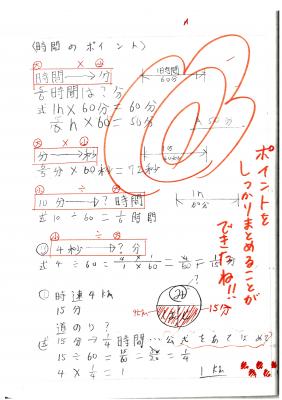 〈時間のポイント〉
大 × 小
時間→分
5/6時間は?分
式 1h×60分=60分
5/6h×60=50分
1時間
60分
50分
大 × 小
分→秒
6/5分×60秒=72秒
小 ÷ 大
10分→?時間
式 10÷60=1/6時間
1h
60分
小 ÷ 大
4秒→?分
式 4÷60=
①時速4km
15分
道のり?
式 15分→1/4時間…公式をあてはめて
15÷60=15/60=1/4
4×1/4=1
1km
15分
ポイントを
しっかりまとめることが
できたね!!